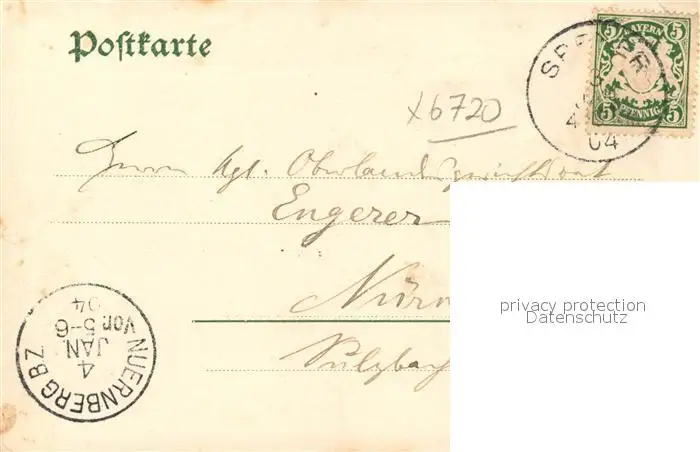 Postkarte
5 BAYERN 5
5 PFENNIG 5
04
x6720
Herrn Kgl. Oberlandesgerichtsrat
Engerer
Nürn
Sulzbach
privacy protection
Datenschutz
NUERNBERG BZ
4
JAN
Vor. 5-6
04